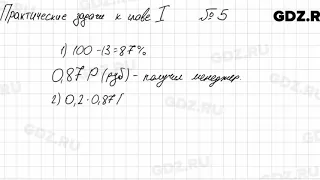 Практические задачи к главе I № 5
GDZ.RU
1) 100 - 13 = 87 %
0,87 P (руб) - получил менеджер.
2) 0,2 · 0,87 Г